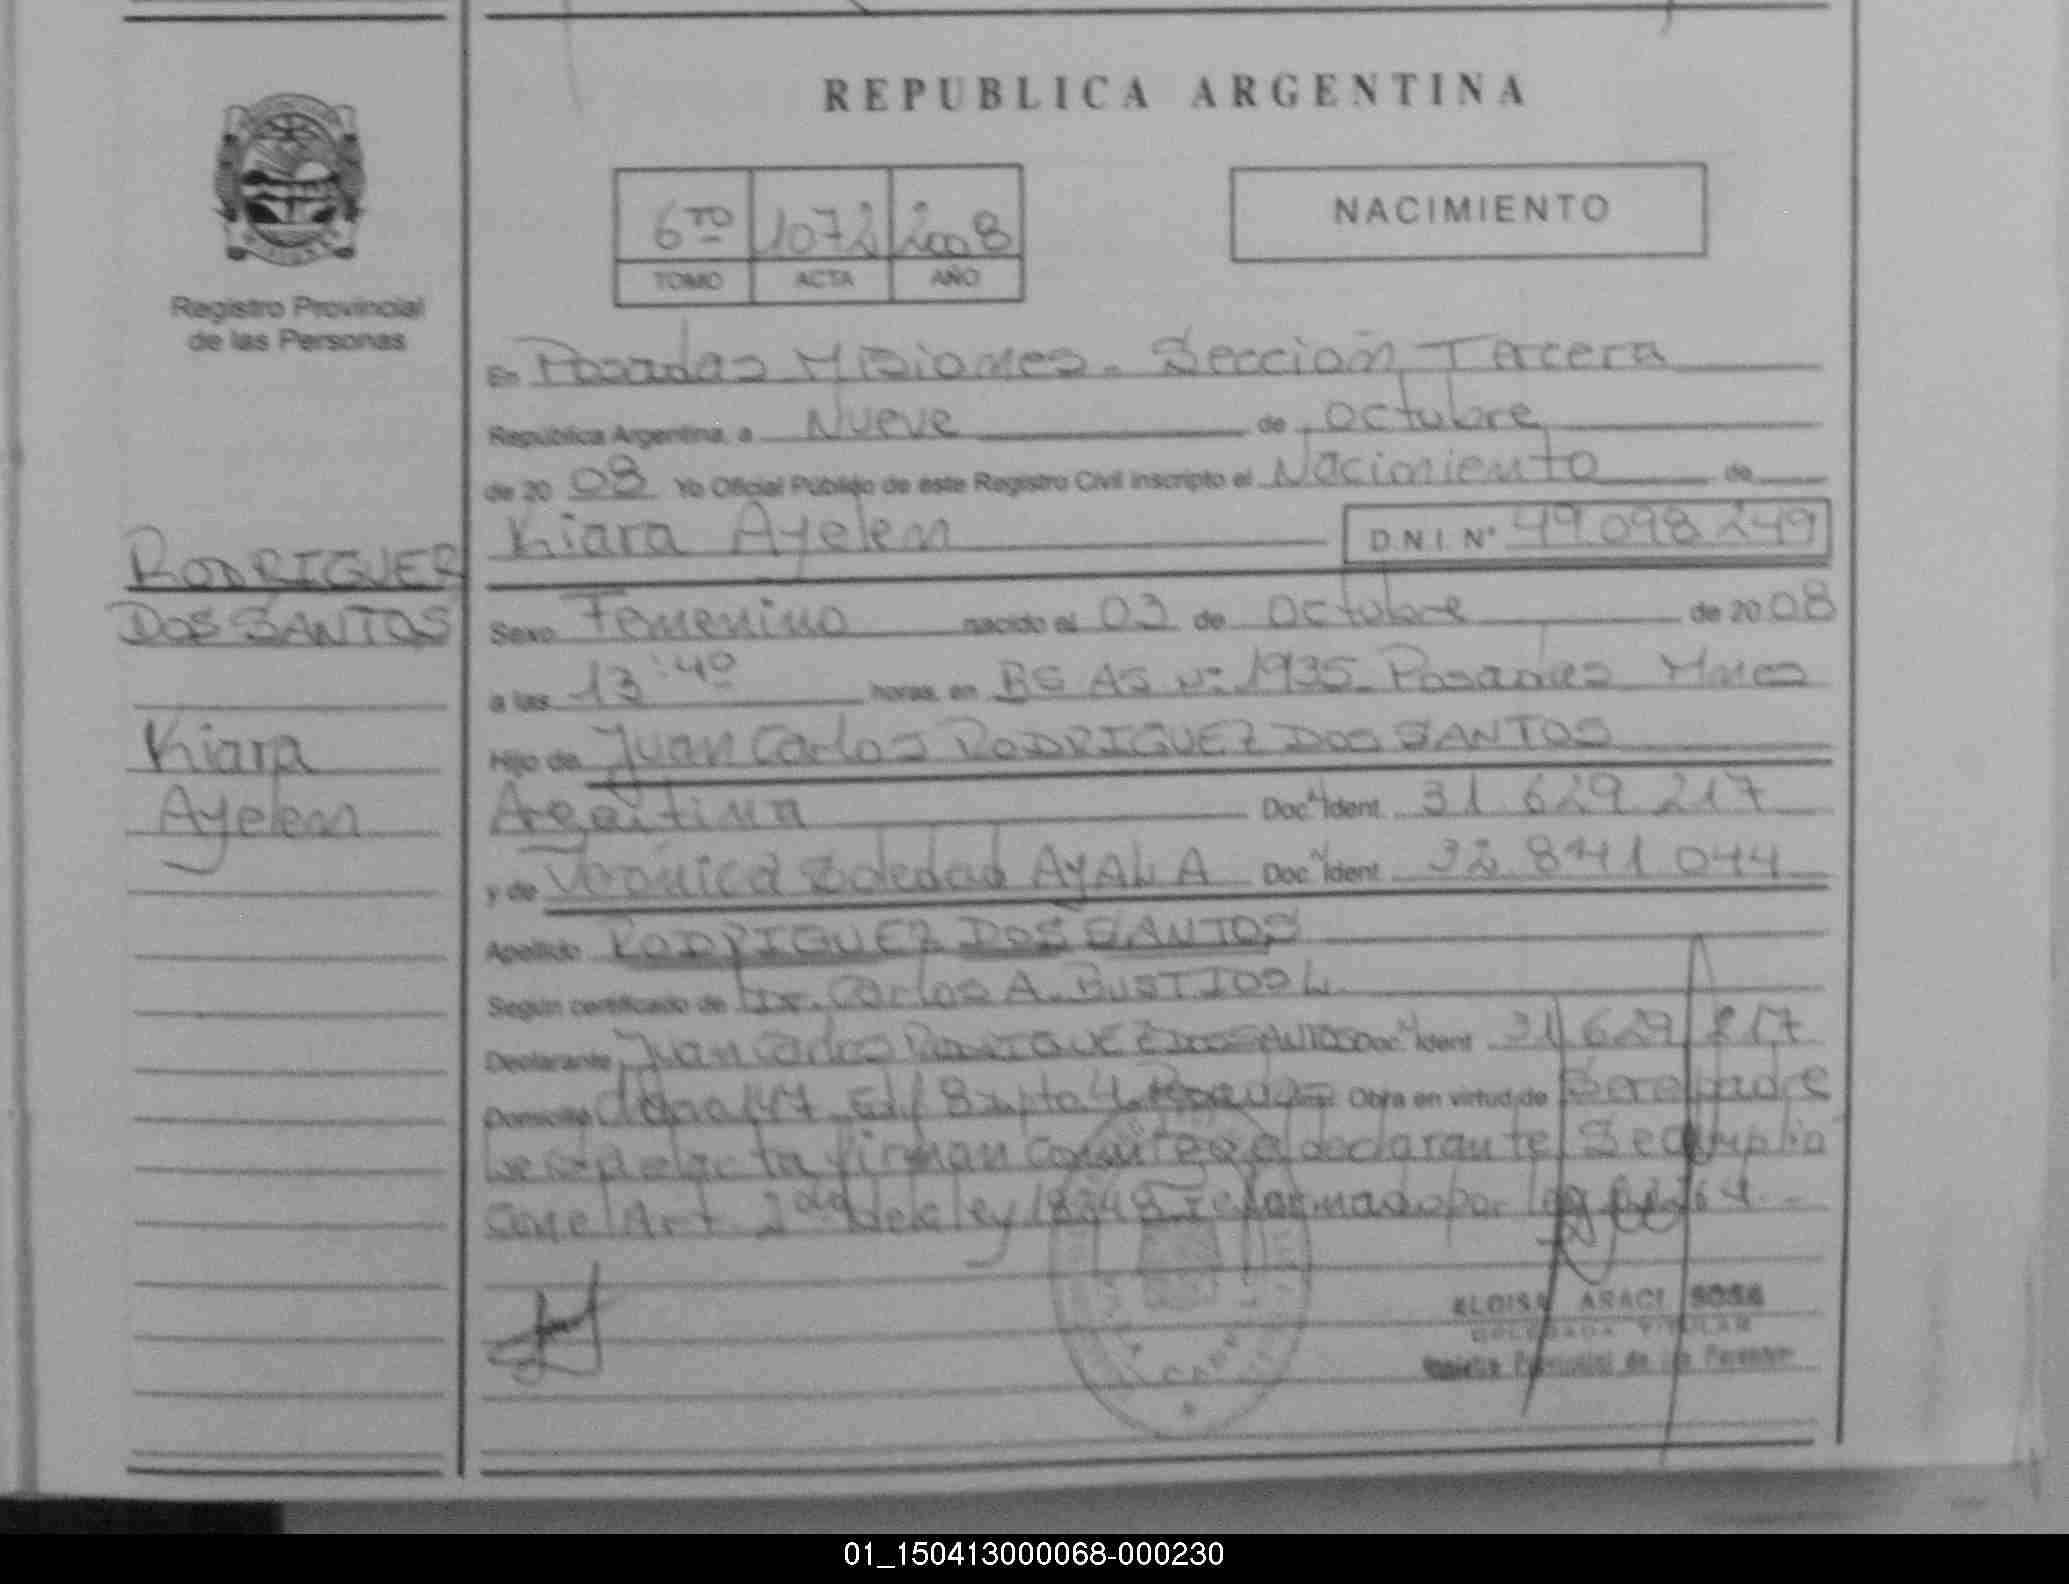 REPUBLICA ARGENTINA
6TO 1072 2008
TOMO ACTA AÑO
NACIMIENTO
Registro Provincial
de las Personas
En Posadas Misiones. Sección Tercera
República Argentina, a Nueve de octubre
de 20 08 Yo Oficial Público de éste Registro Civil inscripto el Nacimiento de
Kiara Ayelen D.N.I. Nº 49.098.249
RODRIGUEZ
DOS SANTOS
Kiara
Ayelen
Sexo Femenino nacido el 03 de Octubre de 20 08
a las 13:40 horas, en BS AS Nº 1935 Posadas Mnes
Hijo de Juan Carlos RODRIGUEZ DOS SANTOS
Argentina Doc. Ident. 31.629.217
y de Verónica Soledad AYALA Doc. Ident. 32.841.044
Apellido RODRIGUEZ DOS SANTOS
Según certificado de Dr. Carlos A. BUSTIOS L.
Declarante Juan Carlos RODRIGUEZ DOS SANTOS Doc. Ident 31.629.217
Domicilio 147 Posadas Obra en virtud de Ser el padre
el acta firman el declarante Se cumplio
con el Art. 2do de la ley 18248 reformado por
ELOISA ARACI SOSA
DELEGADA TITULAR
Registro Provincial de las Personas
01_150413000068-000230